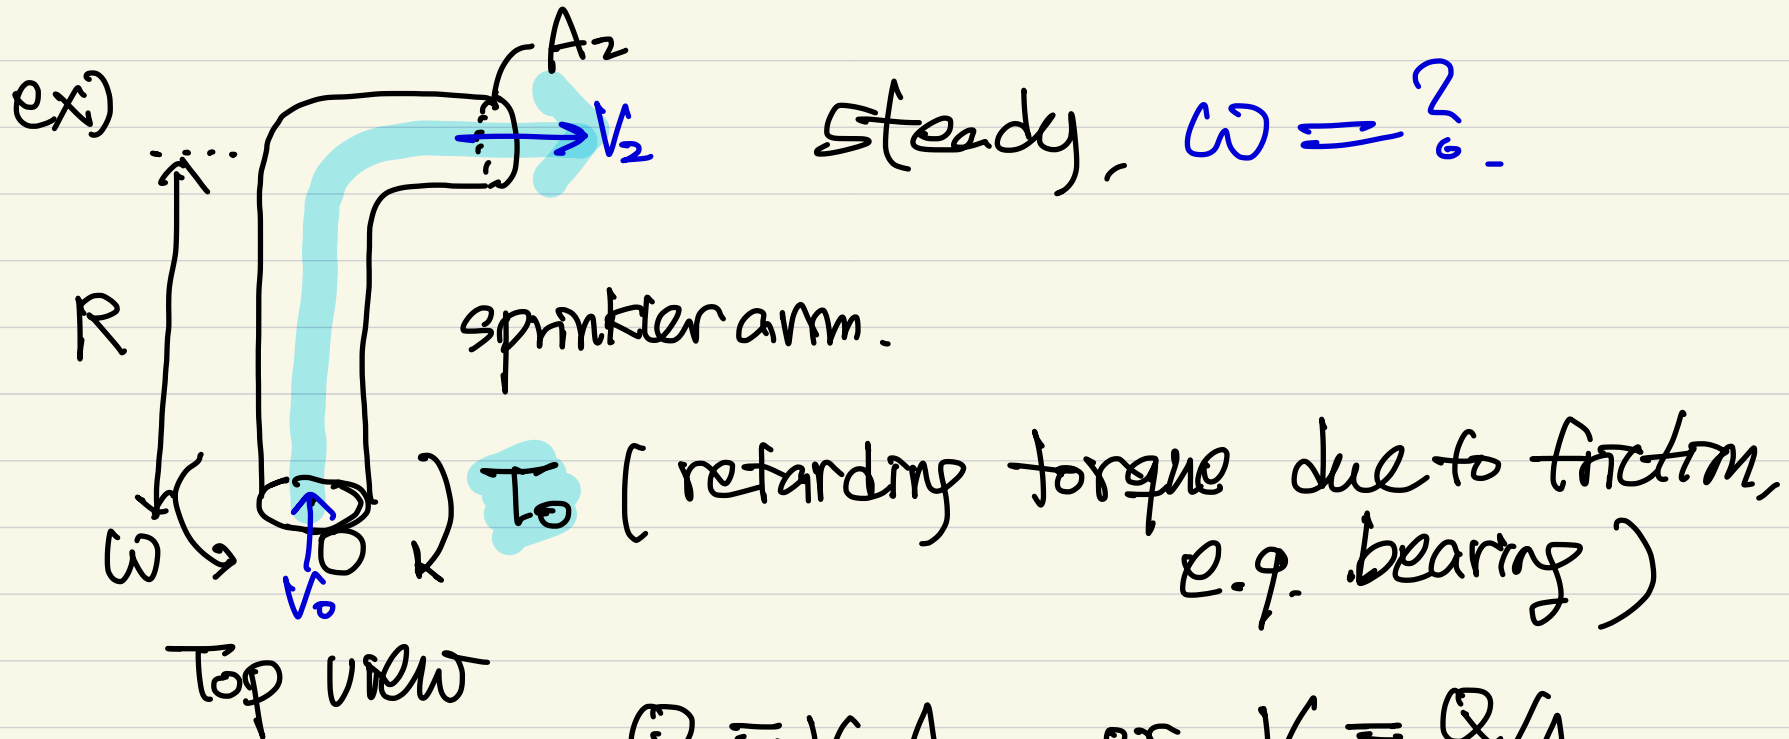 ex)
A₂
V₂
steady, ω = ?
R
sprinkler arm.
ω
O
V₀
T₀ (retarding torque due to friction,
e.g. bearing)
Top view